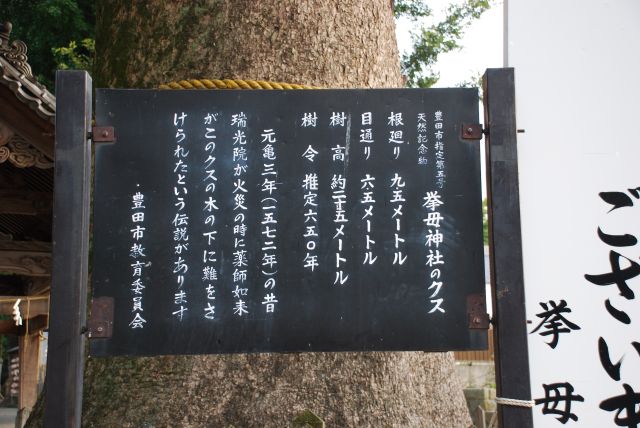 豊田市指定第五号
天然記念物
挙母神社のクス
根廻り 九五メートル
目通り 六五メートル
樹高 約二十五メートル
樹令 推定六五〇年
元亀三年(一五七二年)の昔
瑞光院が火災の時に薬師如来
がこのクスの木の下に難をさ
けられたいう伝説があります
豊田市教育委員会
ございま
挙母